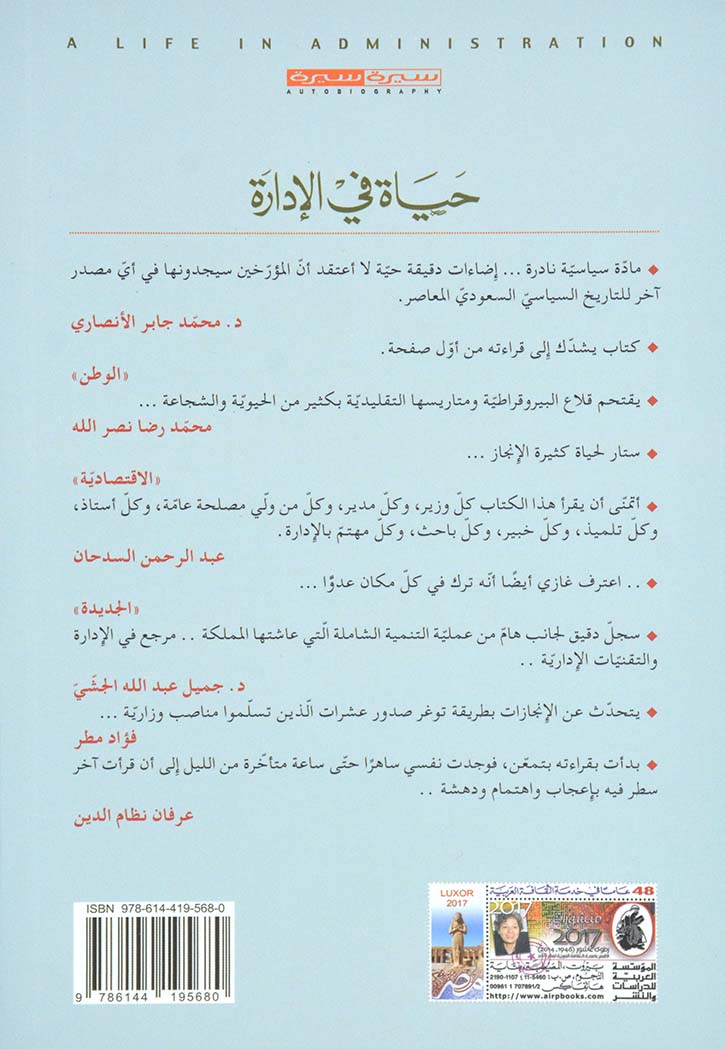 A LIFE IN ADMINISTRATION
سيرة سيرة
AUTOBIOGRAPHY
حَيَاة فيْ الإدارَة
مادّة سياسيّة نادرة ... إضاءات دقيقة حيّة لا أعتقد أنّ المؤرّخين سيجدونها في أيّ مصدر
آخر للتاريخ السياسيّ السعوديّ المعاصر.
د. محمّد جابر الأنصاري
كتاب يشدّك إلى قراءته من أوّل صفحة.
«الوطن»
يقتحم قلاع البيروقراطيّة ومتاريسها التقليديّة بكثير من الحيويّة والشجاعة ...
محمّد رضا نصر الله
ستار لحياة كثيرة الإنجاز ...
«الاقتصاديّة»
أتمّنى أن يقرأ هذا الكتاب كلّ وزير، وكلّ مدير، وكلّ من ولّي مصلحة عامّة، وكلّ أستاذ،
وكلّ تلميذ، وكلّ خبير، وكلّ باحث، وكلّ مهتمّ بالإدارة.
عبد الرحمن السدحان
.. اعترف غازي أيضًا أنّه ترك في كلّ مكان عدوًّا ...
«الجديدة»
سجلّ دقيق لجانب هامّ من عمليّة التنمية الشاملة الّتي عاشتها المملكة .. مرجع في الإدارة
والتقنيّات الإداريّة ..
د. جميل عبد الله الجشّيّ
يتحدّث عن الإنجازات بطريقة توغر صدور عشرات الّذين تسلّموا مناصب وزاريّة ...
فؤاد مطر
بدأت بقراءته بتمعّن، فوجدت نفسي ساهرًا حتّى ساعة متأخّرة من الليل إلى أن قرأت آخر
سطر فيه بإعجاب واهتمام ودهشة ..
عرفان نظام الدين
ISBN 978-614-419-568-0
9 786144 195680
48 عامًا في خدمة الثقافة العربية
LUXOR
2017
2017
2017
رضوى عاشور (1946-2014)
المؤسسة
العربية
للدراسات
والنشر
بيروت، الصنايع، بناية
النجوم، ص.ب: 11-5460 / 1107-2190
هاتفاكس 00961 1 707891/2
http://www.airpbooks.com